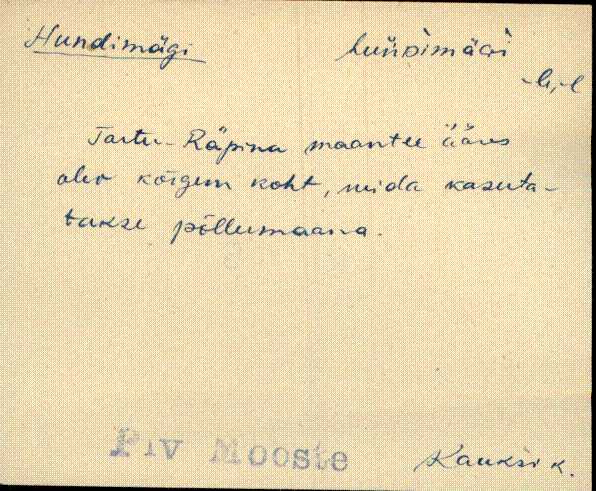 Hundimägi
-le, -l
Tartu-Räpina maantee ääres
olev kõrgem koht, mida kasuta-
takse põllumaana.
Plv Mooste
Kauksi k.